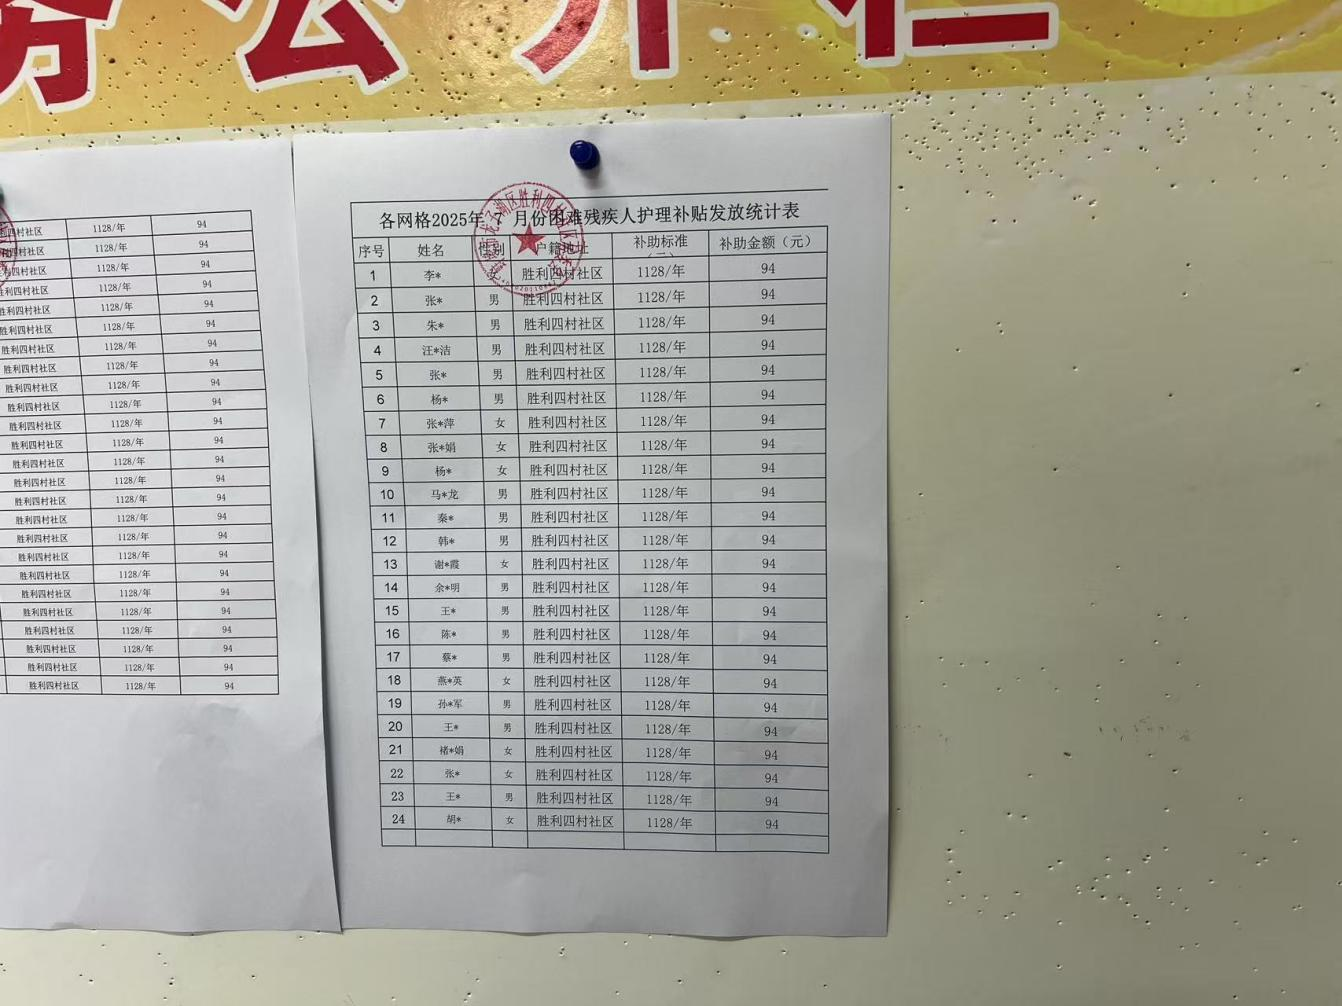 务公开栏
胜利四村社区 1128/年 94
胜利四村社区 1128/年 94
胜利四村社区 1128/年 94
胜利四村社区 1128/年 94
胜利四村社区 1128/年 94
胜利四村社区 1128/年 94
胜利四村社区 1128/年 94
胜利四村社区 1128/年 94
胜利四村社区 1128/年 94
胜利四村社区 1128/年 94
胜利四村社区 1128/年 94
胜利四村社区 1128/年 94
胜利四村社区 1128/年 94
胜利四村社区 1128/年 94
胜利四村社区 1128/年 94
胜利四村社区 1128/年 94
胜利四村社区 1128/年 94
胜利四村社区 1128/年 94
胜利四村社区 1128/年 94
胜利四村社区 1128/年 94
胜利四村社区 1128/年 94
胜利四村社区 1128/年 94
胜利四村社区 1128/年 94
胜利四村社区 1128/年 94
各网格2025年 7 月份困难残疾人护理补贴发放统计表
序号 姓名 性别 户籍地址 补助标准 补助金额（元）
1 李* 女 胜利四村社区 1128/年 94
2 张* 男 胜利四村社区 1128/年 94
3 朱* 男 胜利四村社区 1128/年 94
4 汪*洁 男 胜利四村社区 1128/年 94
5 张* 男 胜利四村社区 1128/年 94
6 杨* 男 胜利四村社区 1128/年 94
7 张*萍 女 胜利四村社区 1128/年 94
8 张*娟 女 胜利四村社区 1128/年 94
9 杨* 女 胜利四村社区 1128/年 94
10 马*龙 男 胜利四村社区 1128/年 94
11 秦* 男 胜利四村社区 1128/年 94
12 韩* 男 胜利四村社区 1128/年 94
13 谢*霞 女 胜利四村社区 1128/年 94
14 余*明 男 胜利四村社区 1128/年 94
15 王* 男 胜利四村社区 1128/年 94
16 陈* 男 胜利四村社区 1128/年 94
17 蔡* 男 胜利四村社区 1128/年 94
18 燕*英 女 胜利四村社区 1128/年 94
19 孙*军 男 胜利四村社区 1128/年 94
20 王* 男 胜利四村社区 1128/年 94
21 褚*娟 女 胜利四村社区 1128/年 94
22 张* 女 胜利四村社区 1128/年 94
23 王* 男 胜利四村社区 1128/年 94
24 胡* 女 胜利四村社区 1128/年 94